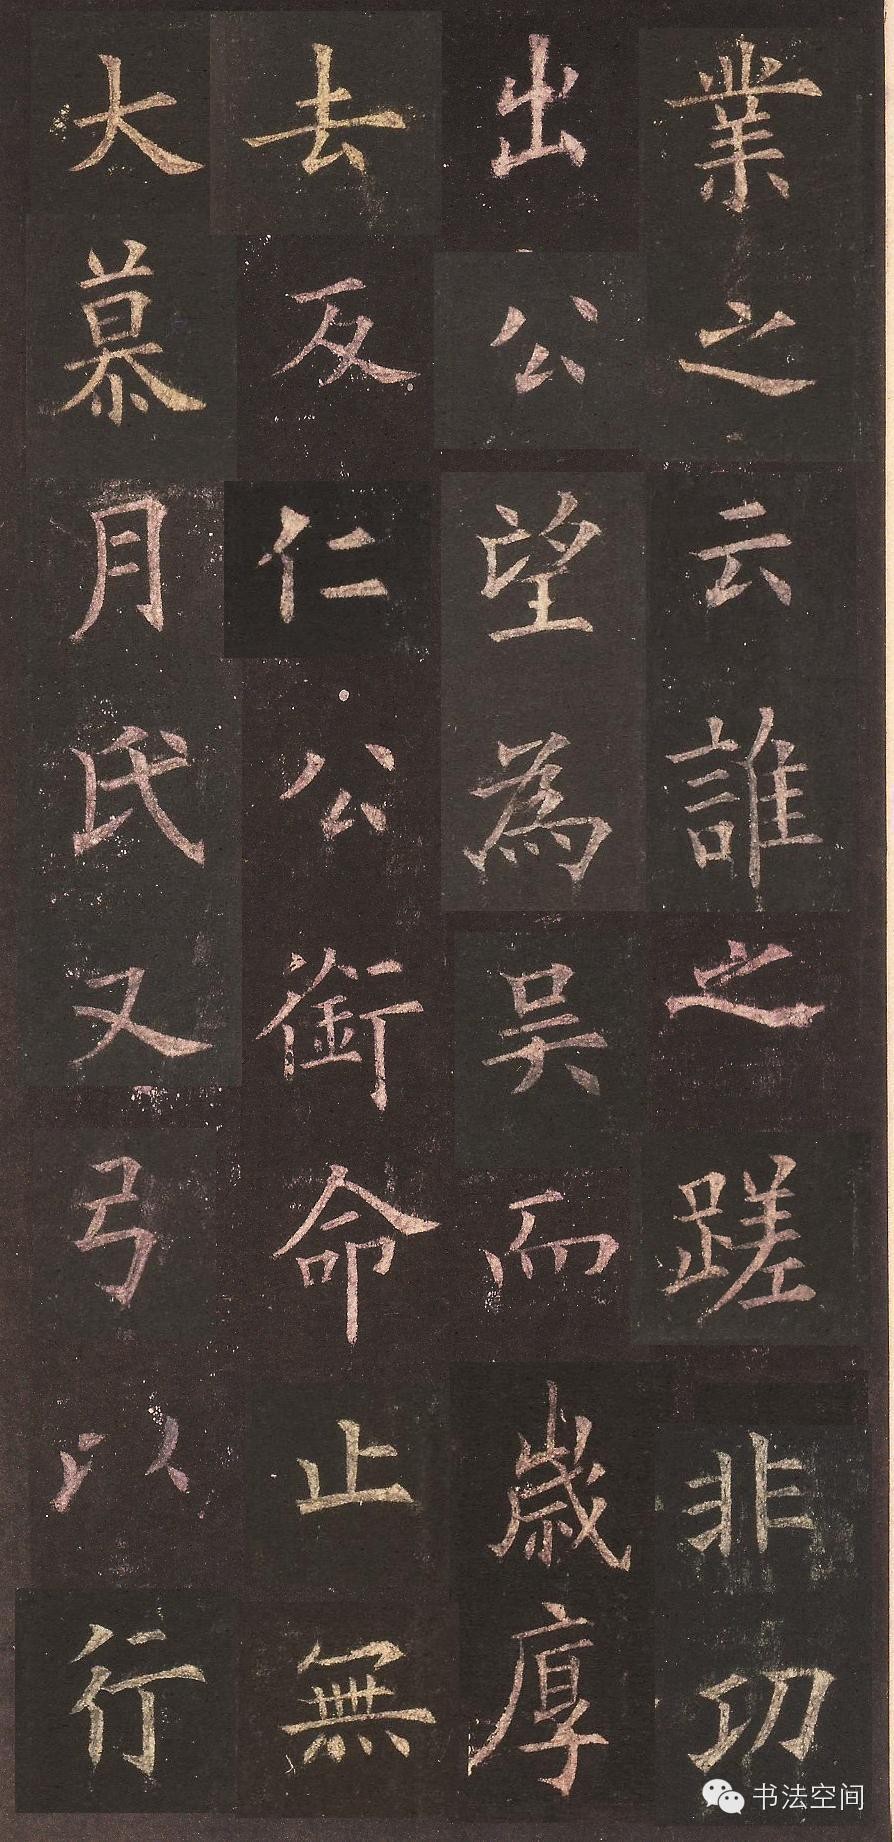 業之云誰之蹉非功
出公望為吳而歲厚
去反仁公銜命止無
大慕月氏又弓以行
书法空间